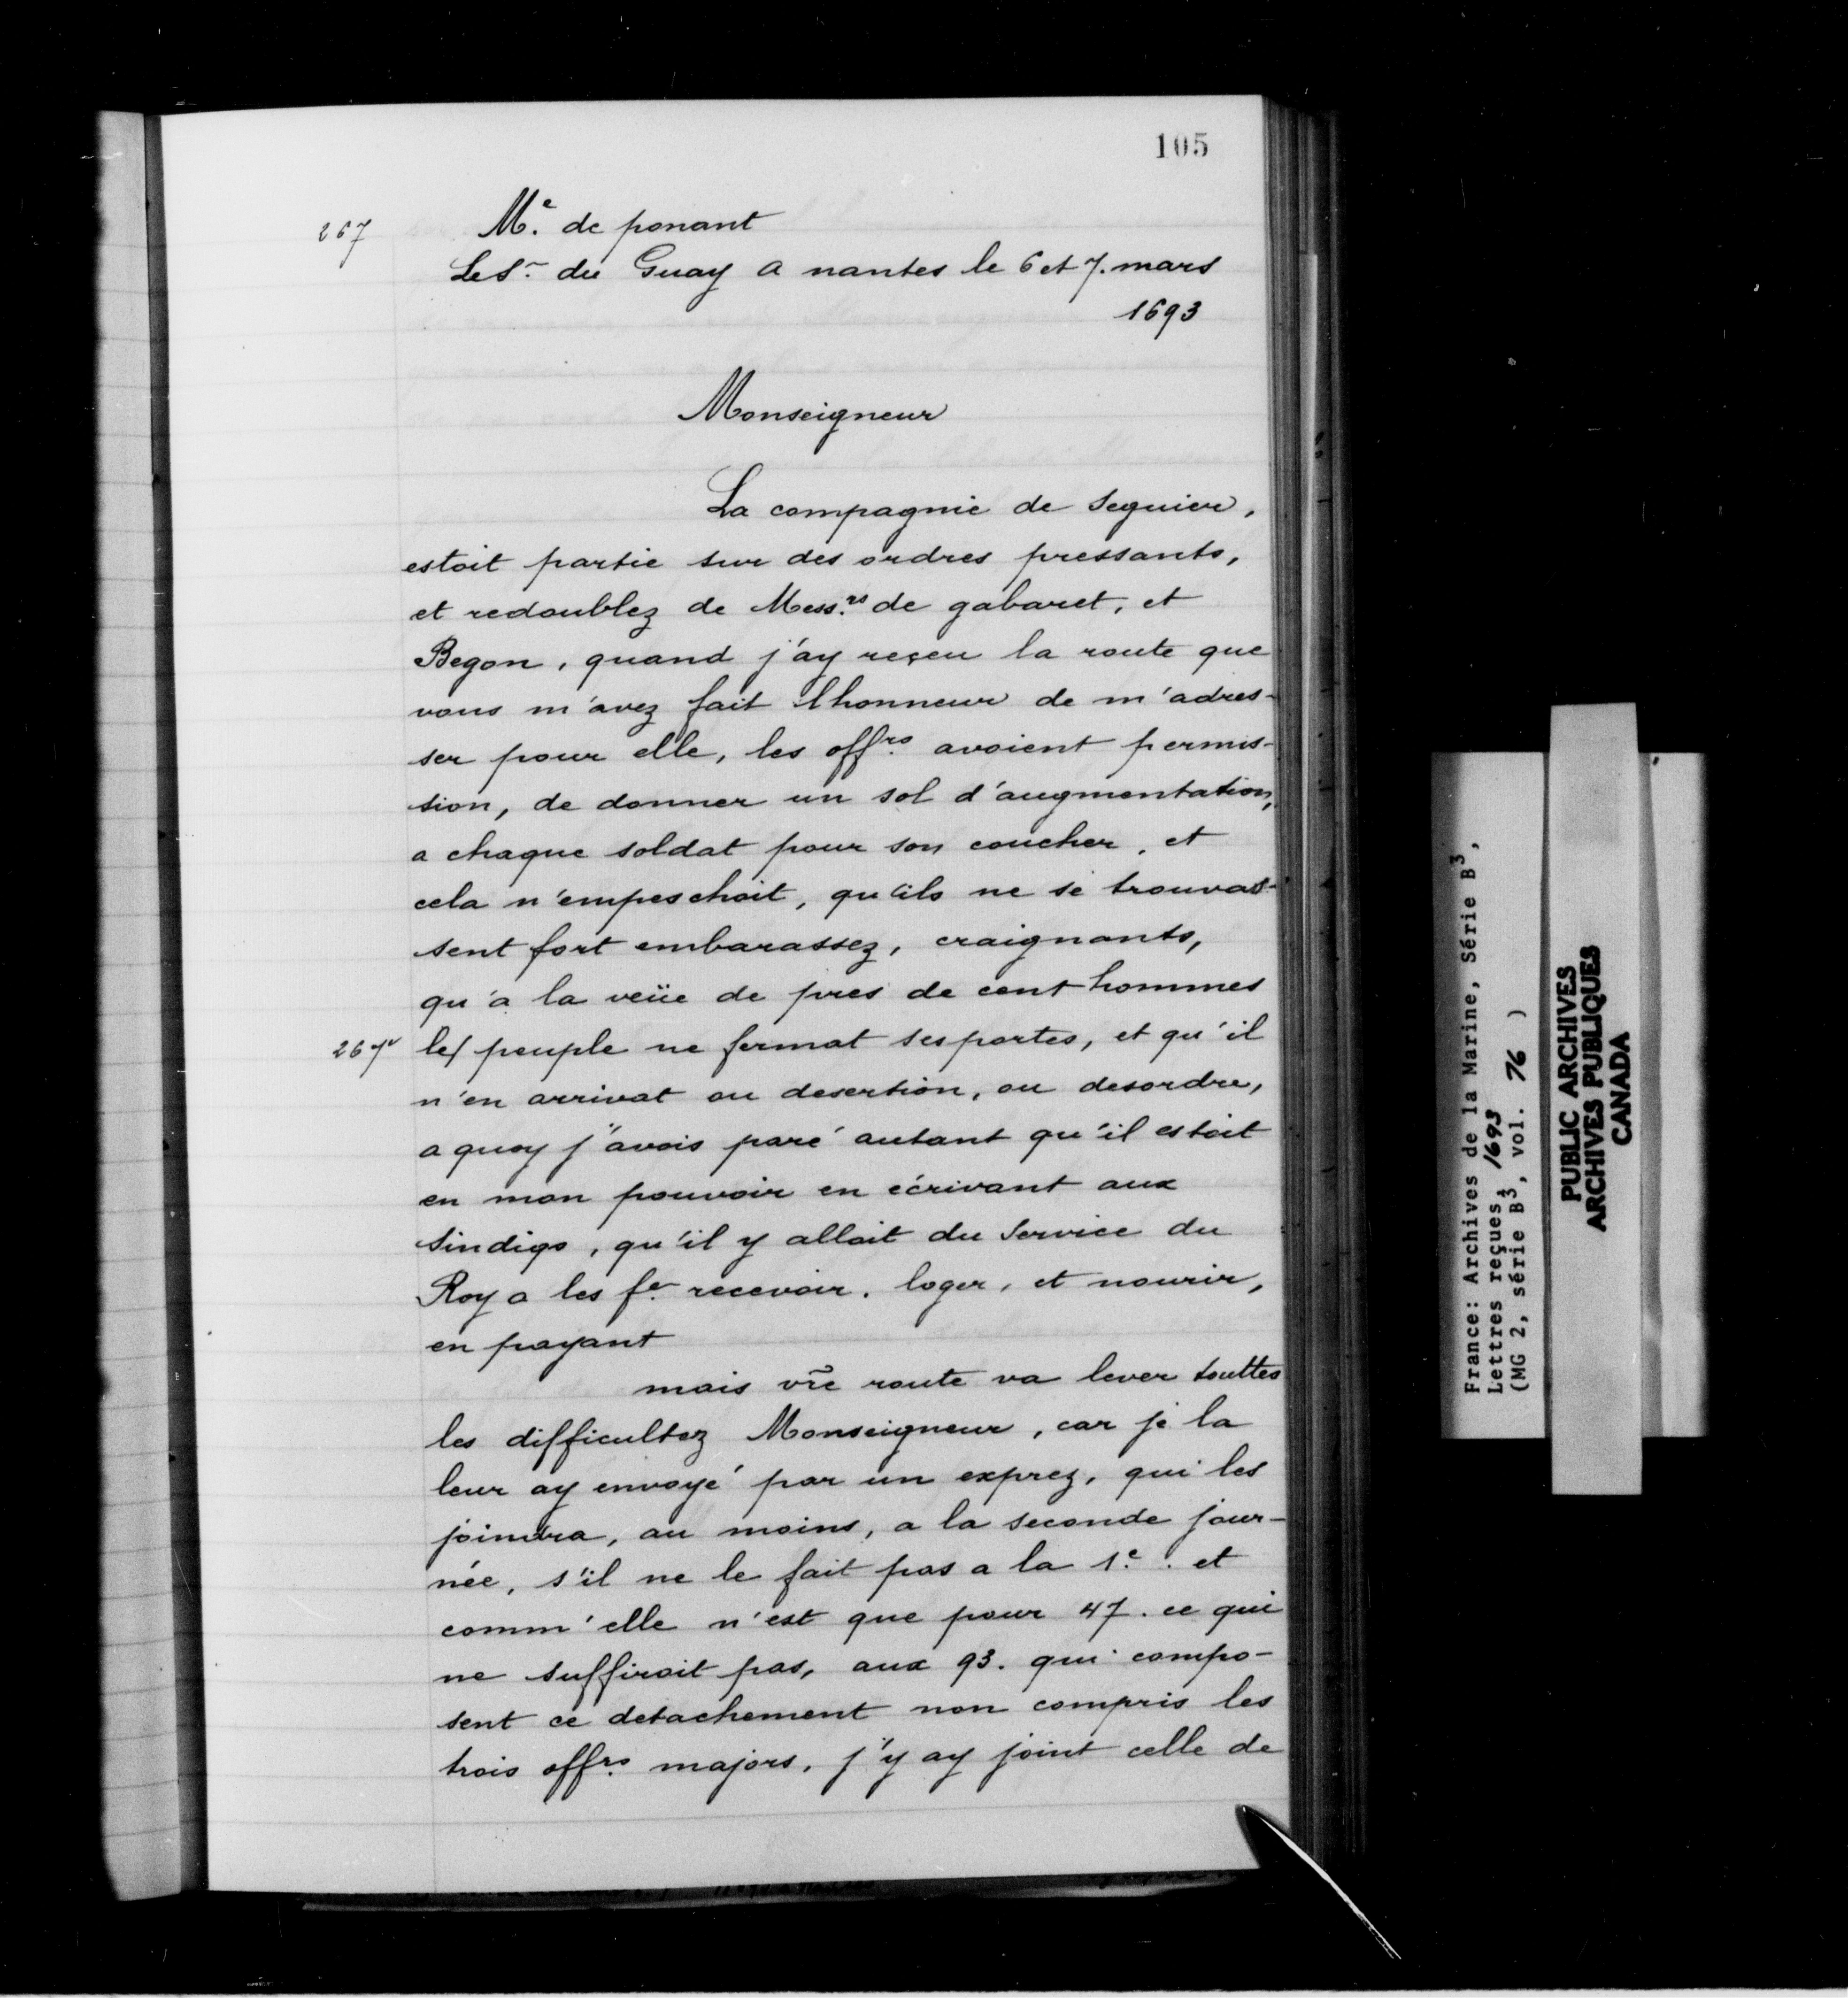 105
267 Mᵉ. de ponant
Le Sʳ. du Guay a nantes le 6 et 7. mars
1693
Monseigneur
La compagnie de seguier,
estoit partie sur des ordres pressants,
et redoublez de Mess.ʳˢ de gabaret, et
Begon, quand j'ay reçeu la route que
vous m'avez fait l'honneur de m'adres-
ser pour elle, les offʳˢ. avoient permis-
sion, de donner un sol d'augmentation,
a chaque soldat pour son coucher, et
cela n'empeschoit, qu'ils ne se trouvas-
sent fort embarassez, craignants,
qu'a la veüe de pres de cent hommes
267ᵛ le/ peuple ne fermat ses portes, et qu'il
n'en arrivat ou desertion, ou desordre,
a quoy j'avois paré autant qu'il estoit
en mon pouvoir en écrivant aux
sindigs, qu'il y alloit du Service du
Roy a les fᵉ. recevoir, loger, et nourir,
en payant
mais vr̃e route va lever touttes
les difficultez Monseigneur, car je la
leur ay envoyé par un exprez, qui les
joindra, au moins, a la seconde jour-
née, s'il ne le fait pas a la 1ᵉ. . et
comm'elle n'est que pour 47. ce qui
ne suffiroit pas, aux 93. qui compo-
sent ce detachement non compris les
trois offʳˢ. majors, j'y ay joint celle de
France: Archives de la Marine, Série B³,
Lettres reçues, 1693
(MG 2, série B³, vol. 76 )
PUBLIC ARCHIVES
ARCHIVES PUBLIQUES
CANADA